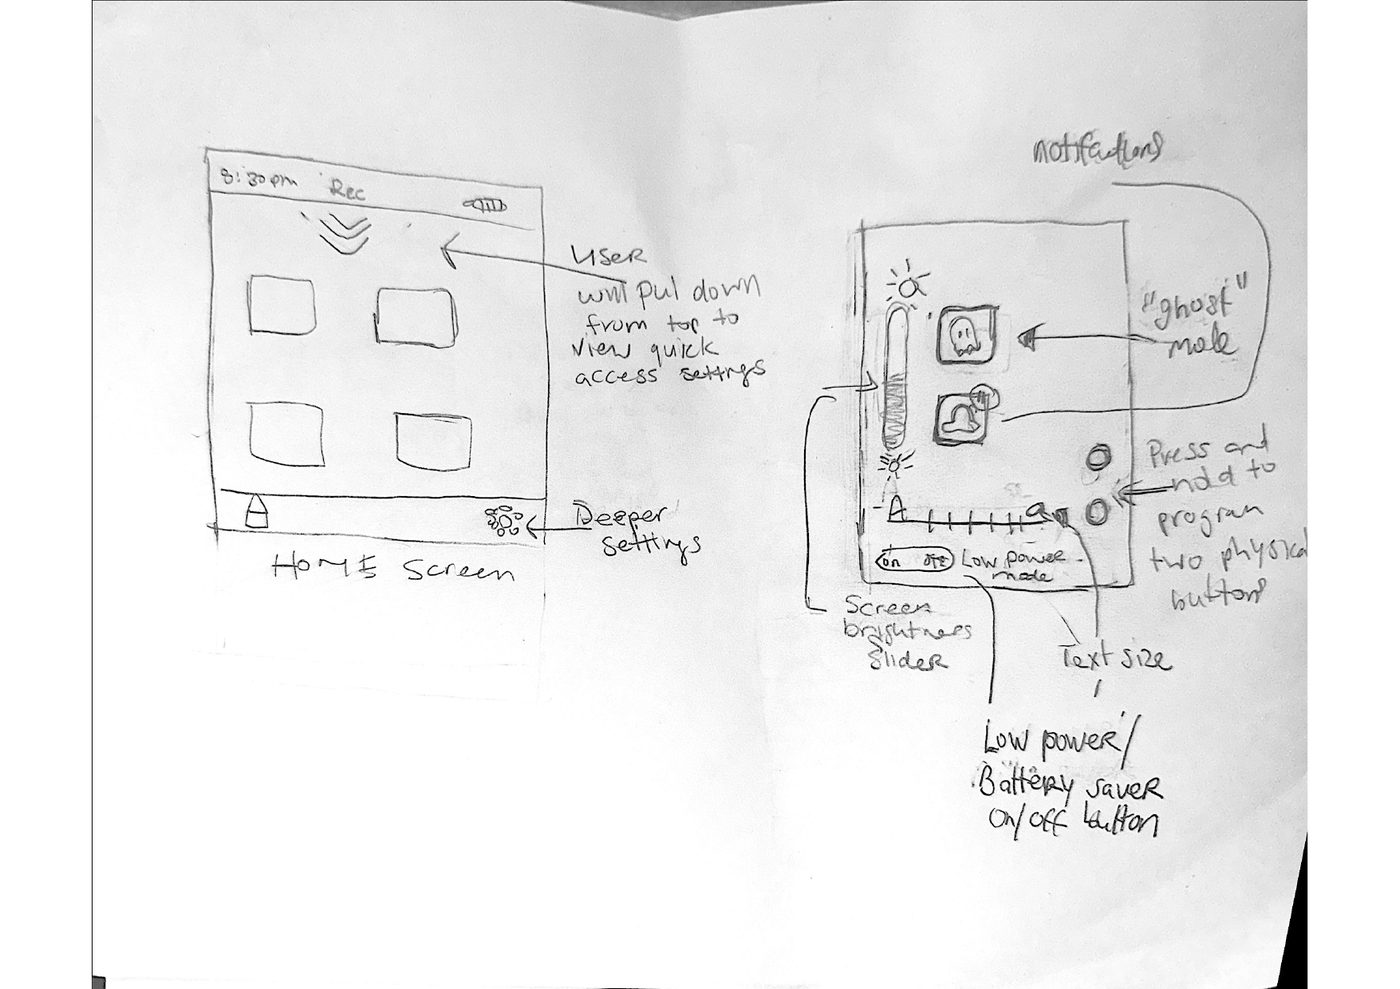 8:30pm Rec
User
will pul down
from top to
view quick
access settings
Deeper
settings
HOME Screen
notifications
"ghost"
mode
Press and
hold to
program
two physical
buttons
A
a
on off Low power
mode
Screen
brightness
slider
Text size
Low power/
Battery saver
on/off button